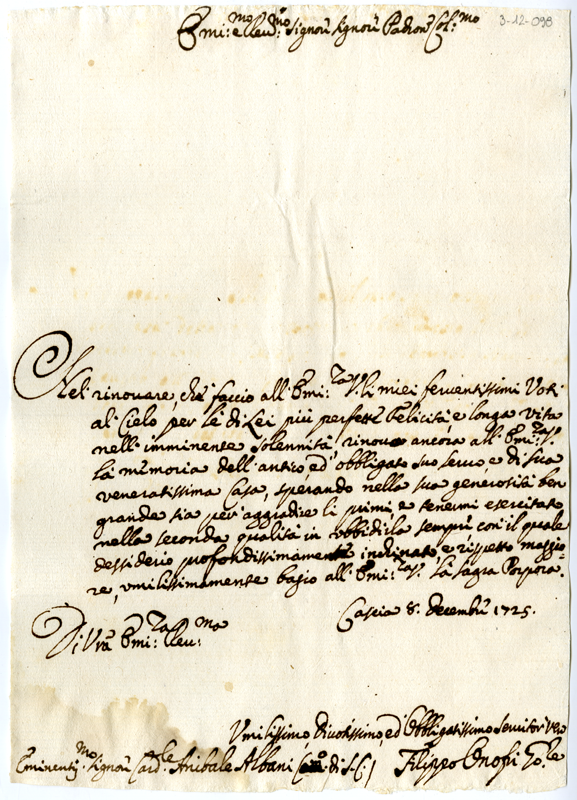 3-12-098
Emi:mo e Reu:mo Signore Signore Padrone Col:mo
Nel rinouare, che faccio all'Emi:za V. li miei feruentissimi Voti
al Cielo per le di Lei più perfette Felicità, e longa vita
nell'imminente Solennità, rinouo ancora all'Emi:za V.
la memoria dell'antico, ed obbligato suo seruo, e di sua
veneratissima Casa, sperando nella sua generosità ben
grande sia per aggradire li primi, e tenermi esercitato
nella seconda qualità in obbidirla sempre con il quale
dessiderio profondissimamente inclinato, e rispetto maggio
re, vmilissimamente bagio all'Emi:za V. la Sagra Porpora.
Cascia 8. decembre 1725.
Di Vra Emi:za Reu:ma
Vmilissimo, Diuotissimo, ed Obbligatissimo Seruitor vero
Eminentis.mo Signore Card.le Anibale Albani di S. C. Filippo Onofri